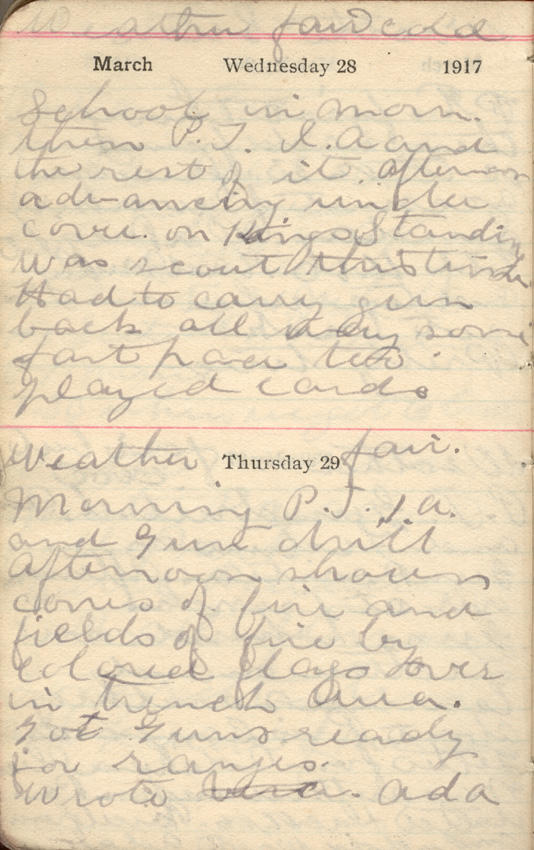 Weather fair cold
March Wednesday 28 1917
School in morn.
then P.T. I.A and
the rest of it. afternoon
advancing under
cover. on Kings Standing
was scout this time
Had to carry gun
back all way some
fast pace too.
played cards
Weather fair.
Thursday 29
Morning P.T. I a.
and gun drill
Afternoon shown
cones of fire and
fields of fire by
colored flags over
in trench area.
Got guns ready
for ranges.
Wrote Vera. Ada